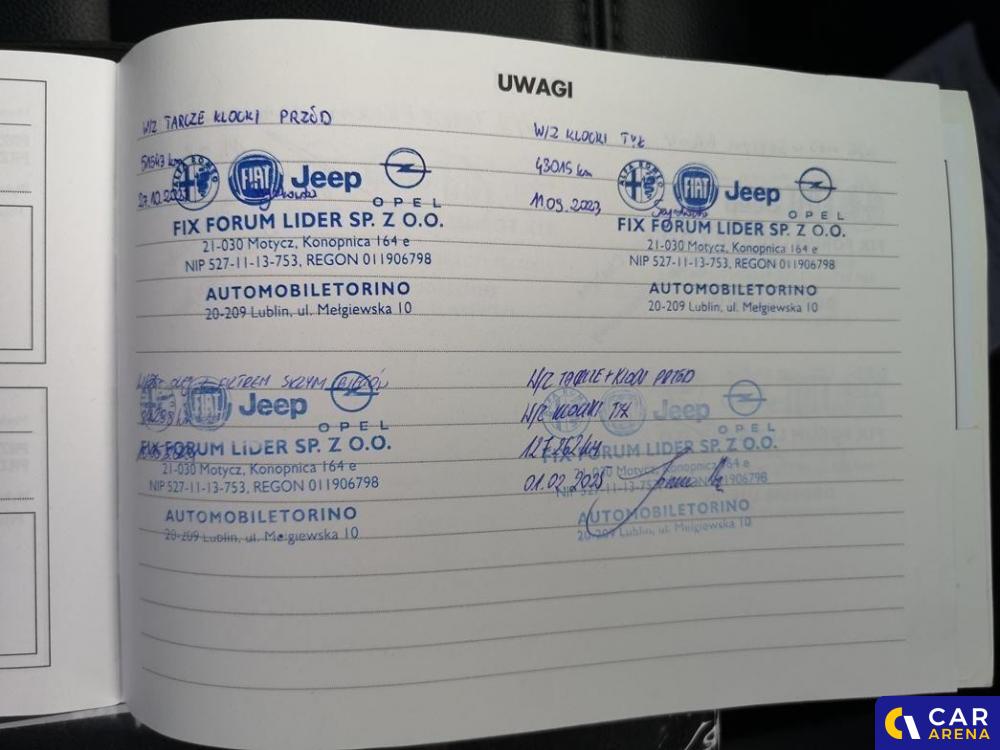 UWAGI
W/Z TARCZE KLOCKI PRZÓD
51543 km
27.10.2023
ALFA ROMEO
FIAT
Jeep
OPEL
FIX FORUM LIDER SP. Z O.O.
21-030 Motycz, Konopnica 164 e
NIP 527-11-13-753, REGON 011906798
AUTOMOBILETORINO
20-209 Lublin, ul. Mełgiewska 10
W/Z KLOCKI TYŁ
43015 km
11.09.2023
ALFA ROMEO
FIAT
Jeep
OPEL
FIX FORUM LIDER SP. Z O.O.
21-030 Motycz, Konopnica 164 e
NIP 527-11-13-753, REGON 011906798
AUTOMOBILETORINO
20-209 Lublin, ul. Mełgiewska 10
OLEJ Z FILTREM SKRZYNI BIEGÓW
FIAT
Jeep
OPEL
FIX FORUM LIDER SP. Z O.O.
21-030 Motycz, Konopnica 164 e
NIP 527-11-13-753, REGON 011906798
AUTOMOBILETORINO
20-209 Lublin, ul. Mełgiewska 10
W/Z TARCZE + KLOCKI PRZÓD
W/Z KLOCKI TYŁ
127.262 km
01.02.2025
Jeep
OPEL
FIX FORUM LIDER SP. Z O.O.
Motycz, Konopnica 164 e
NIP 527-11-13-753,
AUTOMOBILETORINO
20-209 Lublin, ul. Mełgiewska 10
CAR
ARENA